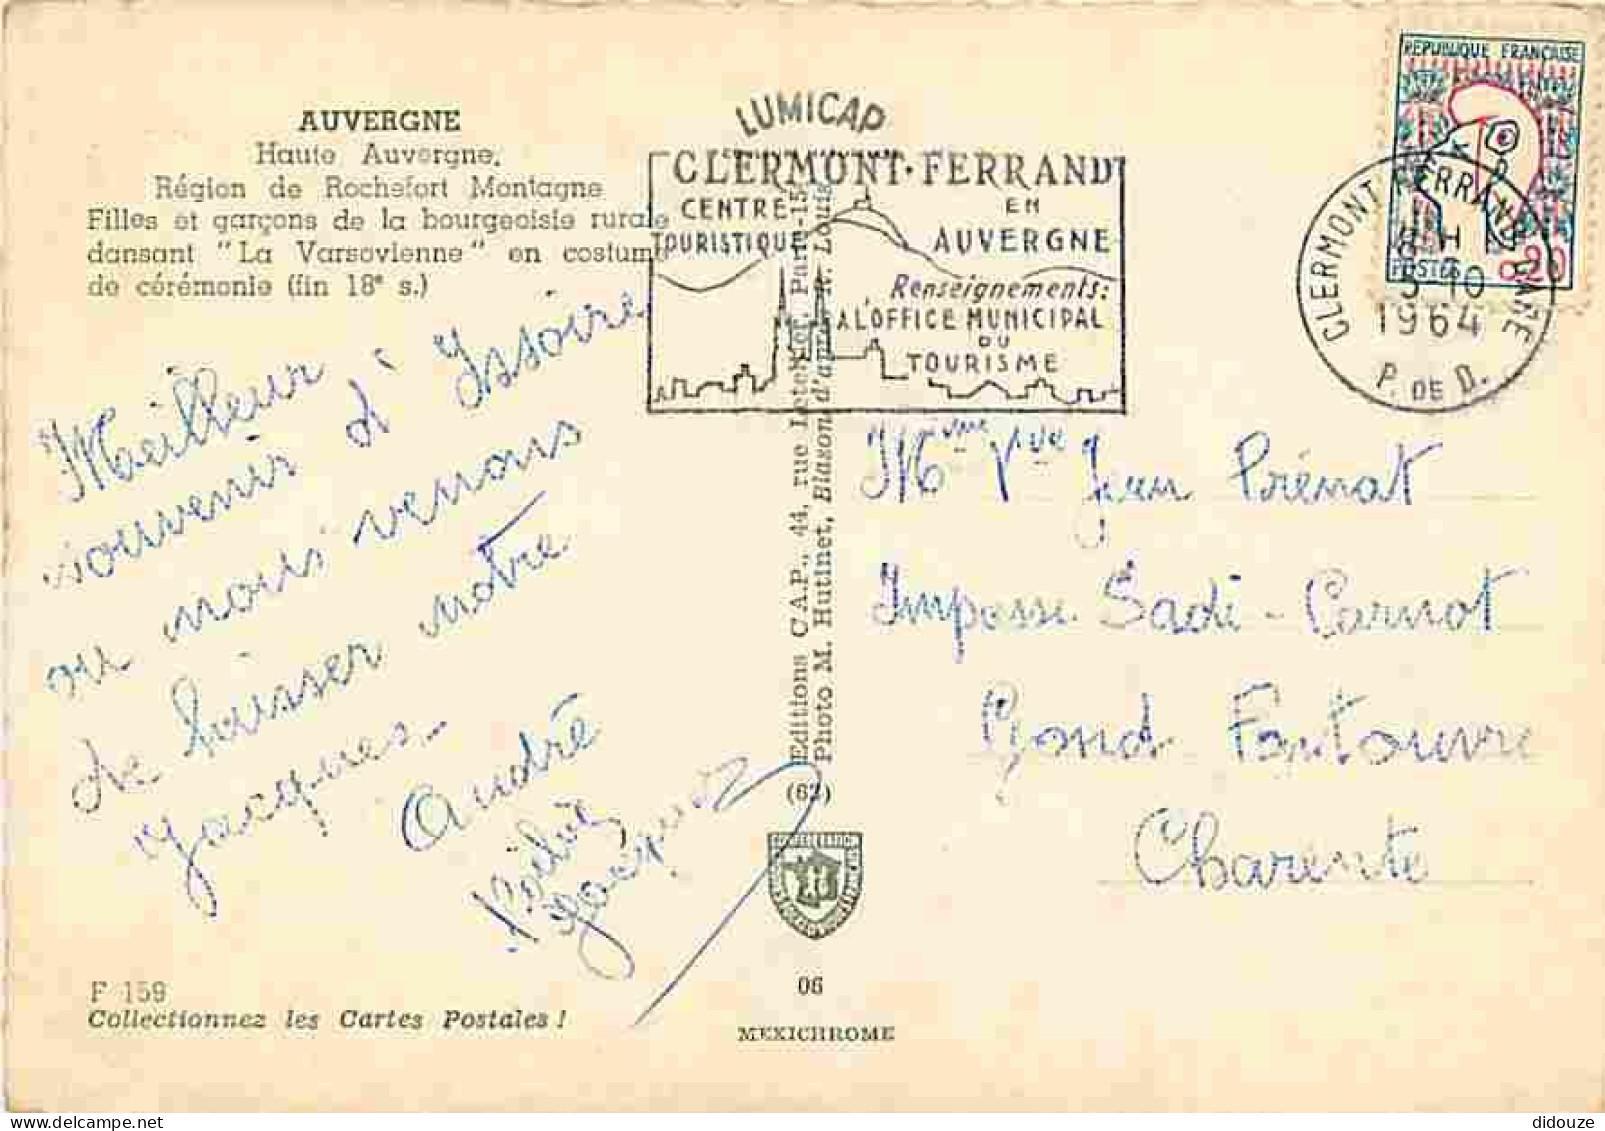 AUVERGNE
Haute Auvergne.
Région de Rochefort Montagne
Filles et garçons de la bourgeoisie rurale
dansant "La Varsovienne" en costume
de cérémonie (fin 18e s.)
Meilleur
souvenir d'Issoire
ou nous venons
de laisser notre
Jacques.
André
Jacques
F 159
Collectionnez les Cartes Postales !
LUMICAP
Editions C.A.P., 44, rue Letellier, Paris-15e
Photo M. Hutinet, Blasons d'après R. Louis
(62)
06
MEXICHROME
CLERMONT-FERRAND
CENTRE
TOURISTIQUE
EN
AUVERGNE
Renseignements:
A L'OFFICE MUNICIPAL
DU
TOURISME
REPUBLIQUE FRANÇAISE
POSTES 0,20
CLERMONT FERRAND GARE
5-10
1964
P. DE D.
Mme Vve Jean Prénat
Impasse Sadi-Carnot
Gond Fontouvre
Charente
didouze